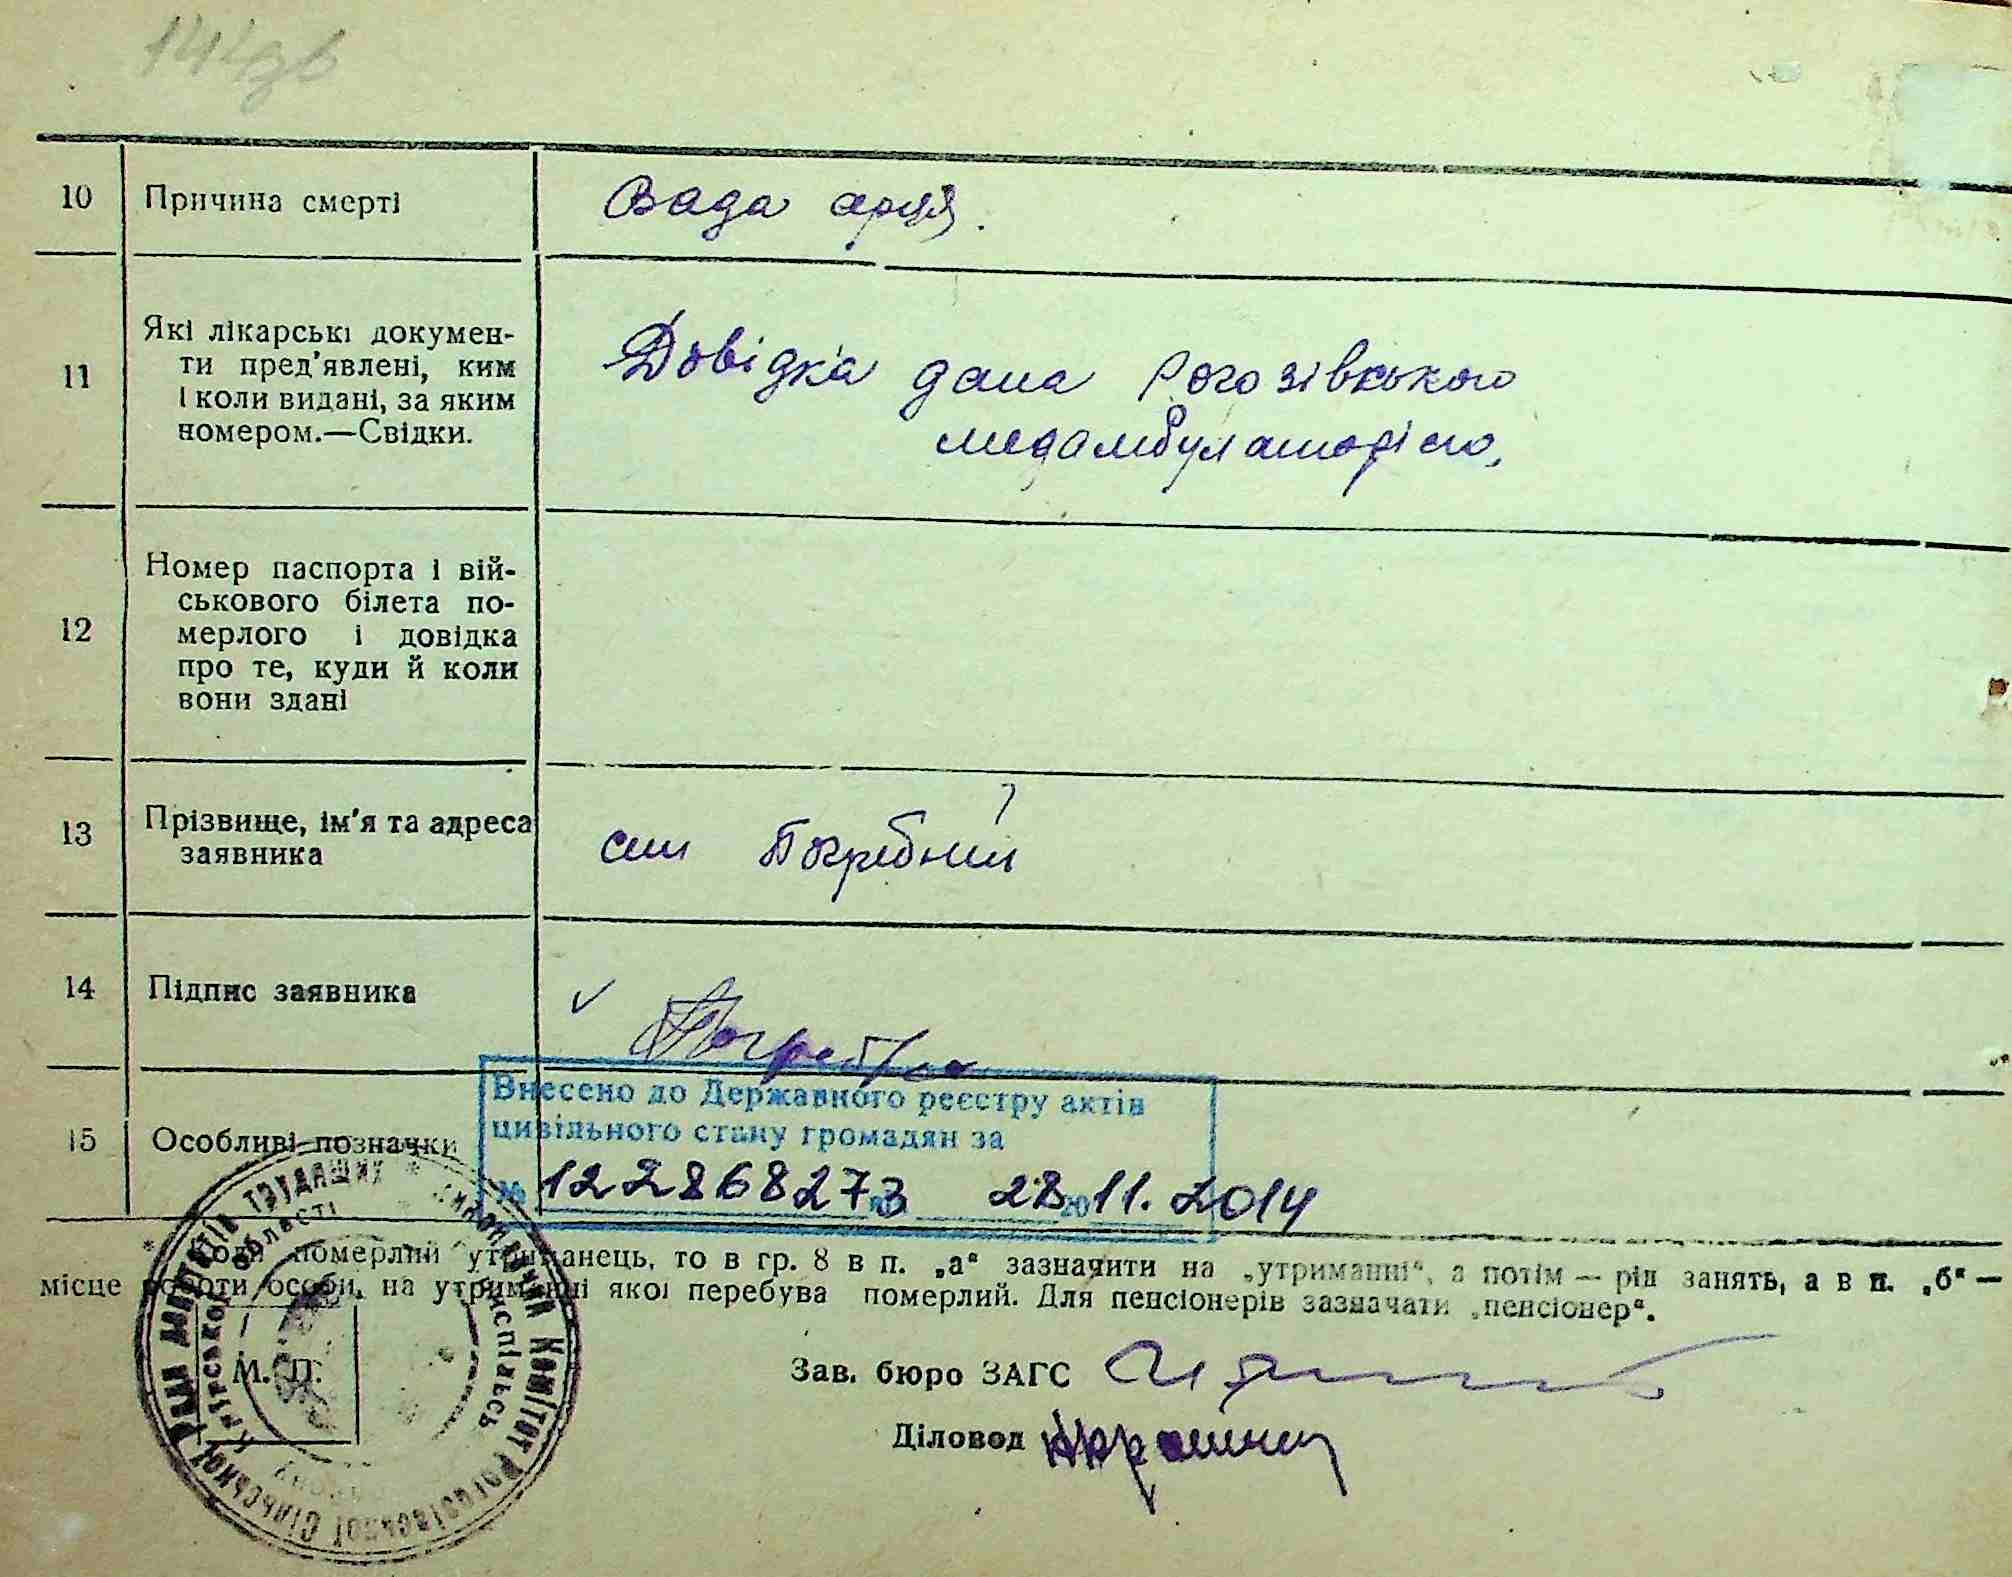 144зв
10 Причина смерті Вада серця.
11 Які лікарські докумен-
ти пред'явлені, ким
і коли видані, за яким
номером.—Свідки.
Довідка дана Рогозівською
медамбулаторією,
12 Номер паспорта і вій-
ськового білета по-
мерлого і довідка
про те, куди й коли
вони здані
13 Прізвище, ім'я та адреса
заявника
син Погребний
14 Підпис заявника
15 Особливі позначки
Внесено до Державного реєстру актів
цивільного стану громадян за
№ 122868273 28 20 11. 2014
померлий утриманець, то в гр. 8 в п. „а“ зазначити на „утриманні“, а потім — рід занять, а в п. „б“ —
місце роботи особи, на утриманні якої перебува померлий. Для пенсіонерів зазначати „пенсіонер“.
М. П.
Зав. бюро ЗАГС
Діловод
Виконавчий Комітет Рогозівської Сільської Ради депутатів трудящих
Київської області